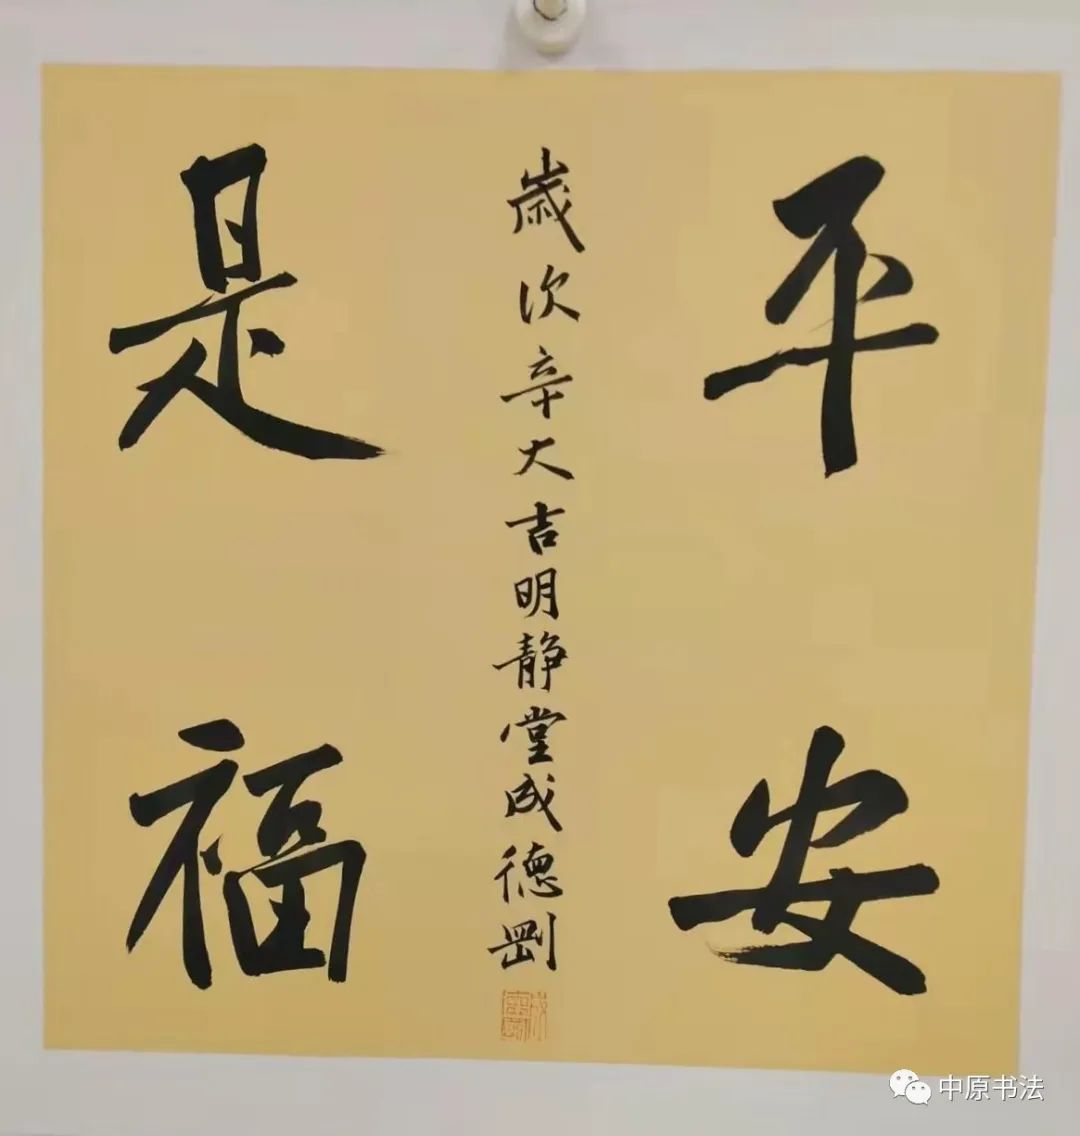 平安
歲次辛大吉明静堂成德剛
是福
中原书法